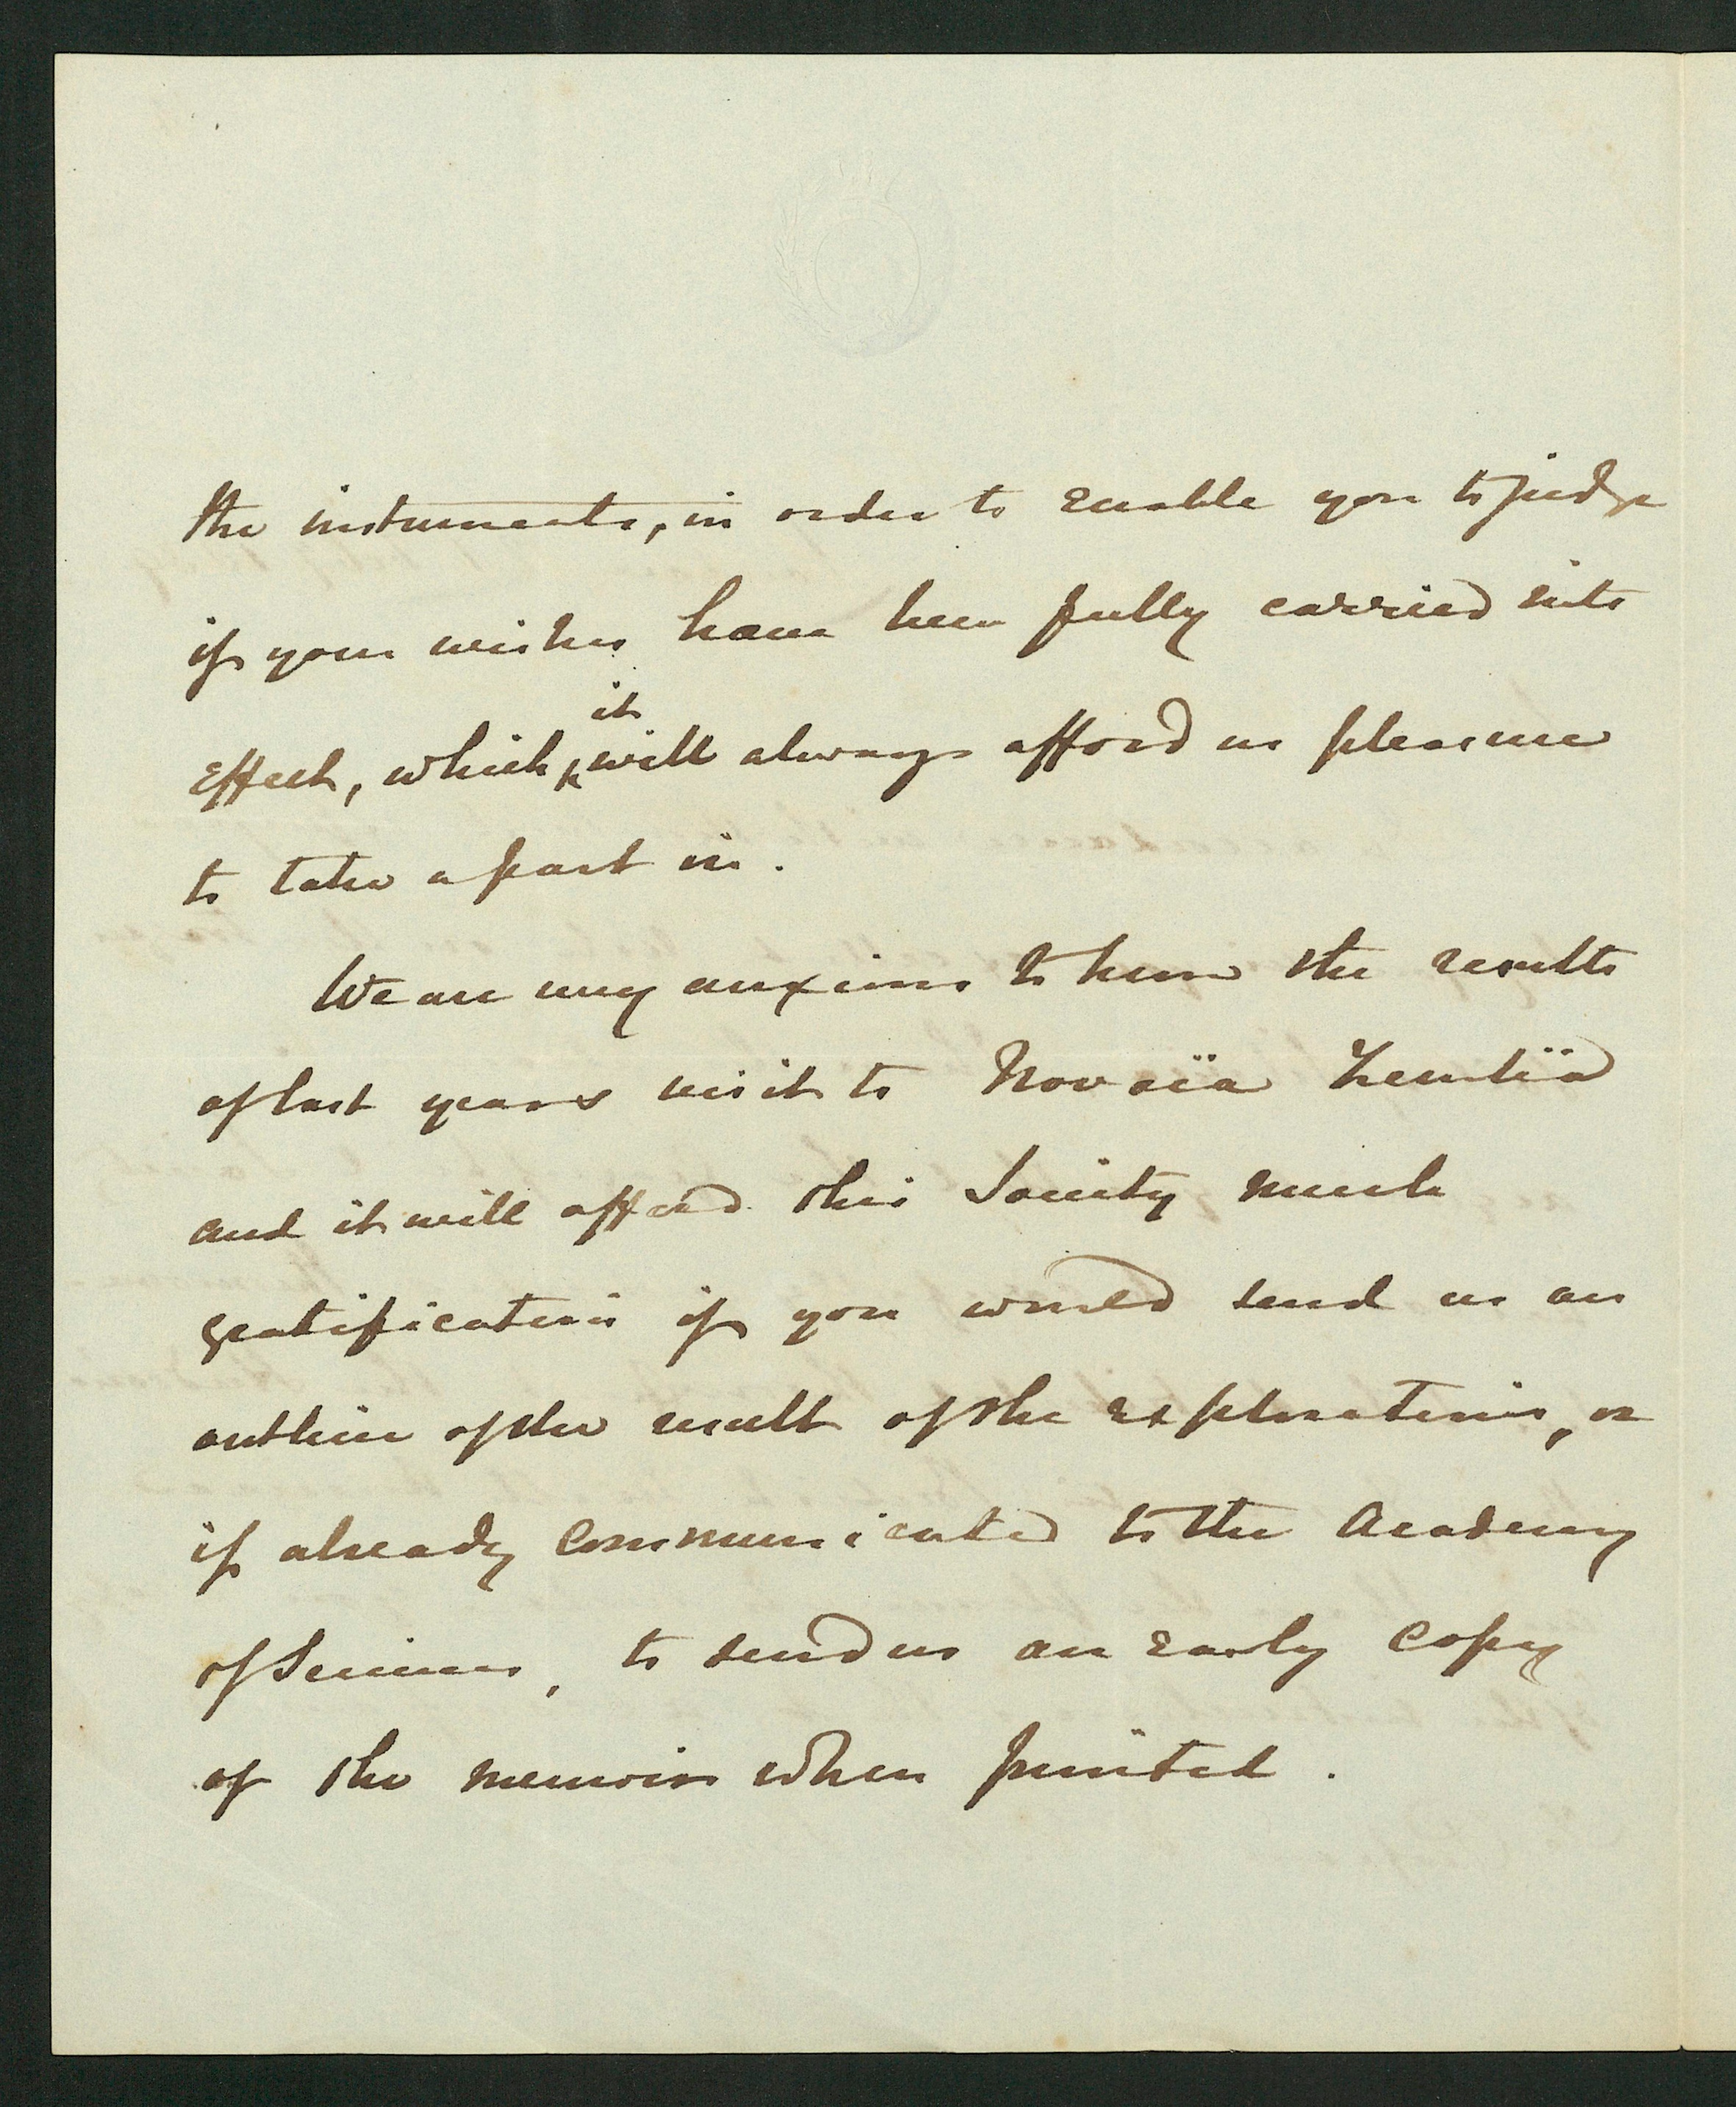 the instruments, in order to enable you to judge
if your wishes have been fully carried into
effect, which it will always afford us pleasure
to take a part in.
We are very anxious to know the results
of last years visit to Novaïa Zemlïa
and it will afford this Society much
gratification if you would send us an
outline of the result of the explorations, or
if already communicated to the Academy
of Sciences, to send us an early copy
of the memoir when printed.